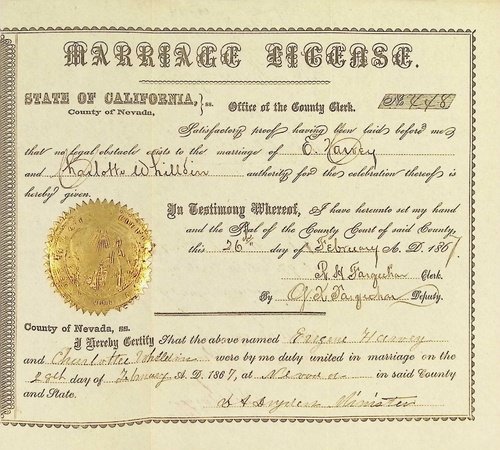 MARRIAGE LICENSE.
STATE OF CALIFORNIA, } ss. Office of the County Clerk. No 448
County of Nevada,
Satisfactory proof having been laid before me
that no legal obstacle exists to the marriage of O. Harvey
and Charlotte Whilldin authority for the celebration thereof is
hereby given.
In Testimony Whereof, I have hereunto set my hand
and the Seal of the County Court of said County,
this 26th day of February A. D. 1867.
R H Farquhar Clerk.
By Farquhar Deputy.
County of Nevada, ss.
I Hereby Certify That the above named Eugene Harvey
and Charlotte Whilldin were by me duly united in marriage on the
28th day of February A. D. 1867, at Nevada in said County
and State.
Dryden Minister